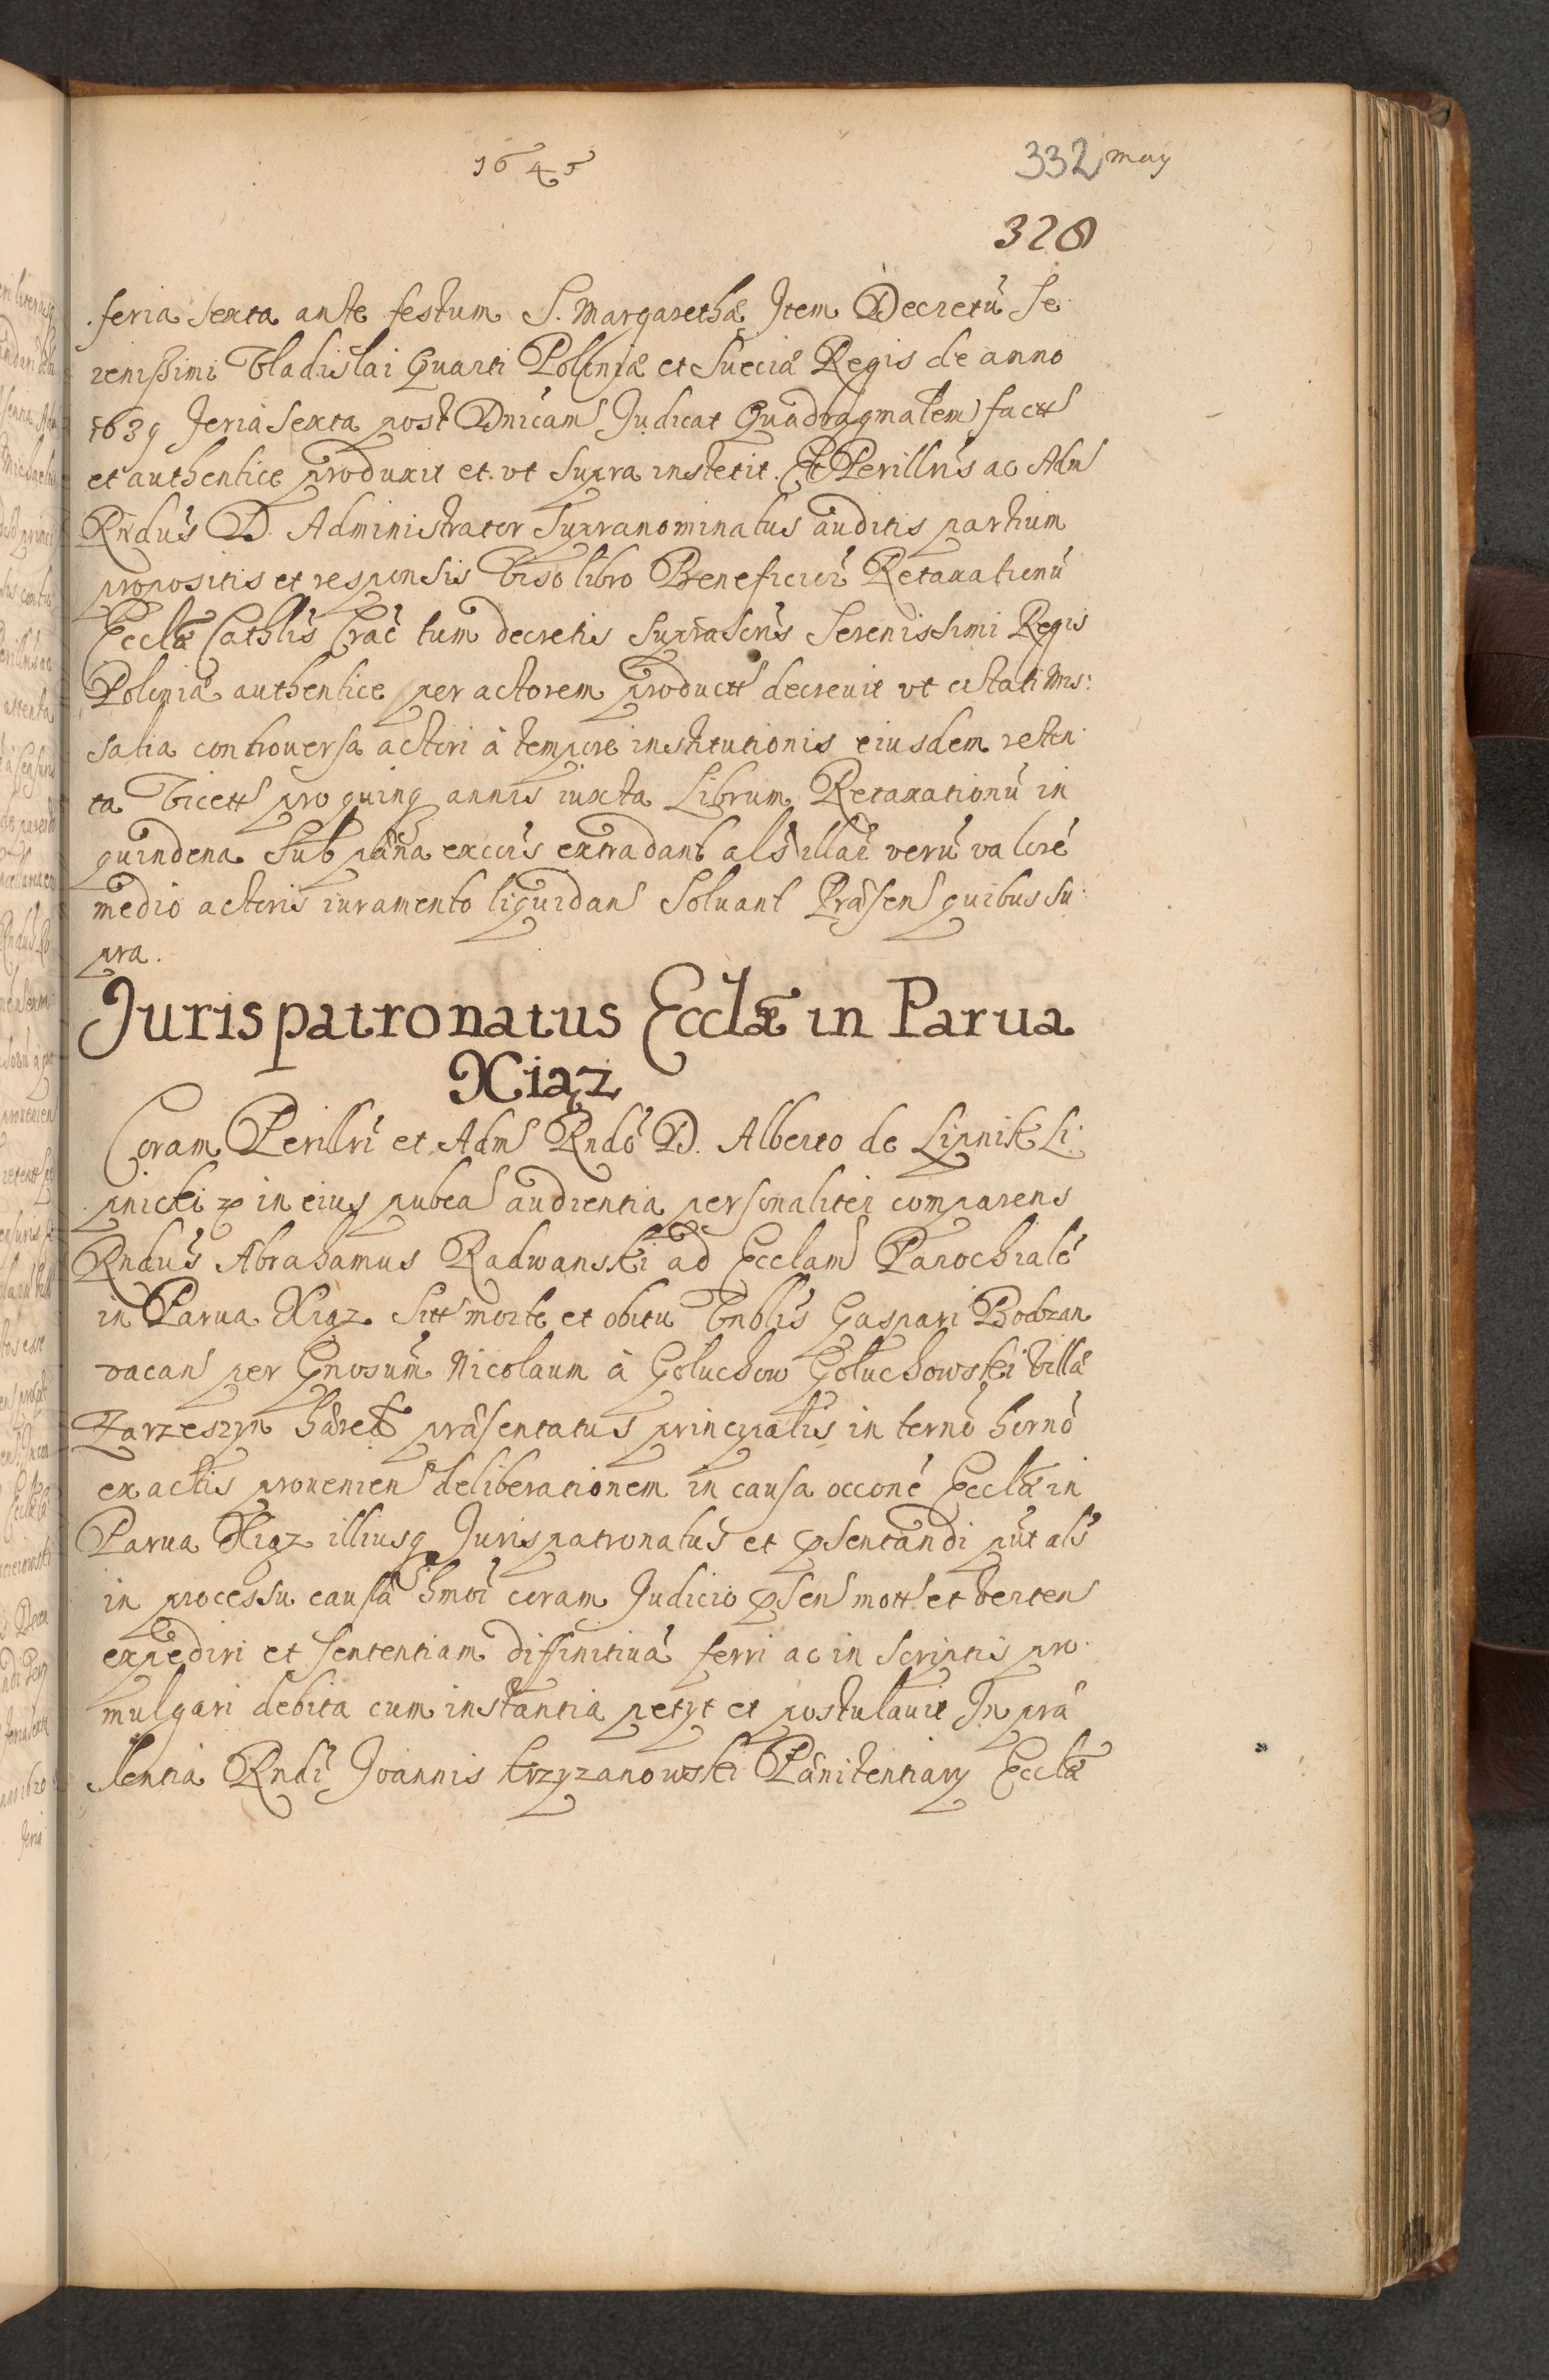 1645
332 may
328
feria sexta ante festum S. Margarethæ Item Decretũ Se
renißimi Vladislai Quarti Poloniæ et Sueciæ Regis de anno
1639 feria sexta post Dnicam Judicat Quadragmalem factt
et authentice produxit et vt supra institit. Et Perillris ac Adm
Rndus D. Administrator supranominatus auditis partium
propositis et responsis Viso libro Beneficior Retaxationũ
Ecclæ Cathlis Crac tum decretis suprascris Serenissimi Regis
Poloniæ authentice per actorem productt decreuit vt citati Mis:
salia controuersa actori à tempore institutionis eiusdem reten
ta Vicett pro quinq annis iuxta Librum Retaxationũ in
quindena sub pæna exccis extradant als illar verũ valore
medio actoris iuramento liquidan soluant Præsen quibus su
pra.
Jurispatronatus Ecclæ in Parua
Xiąz
Coram Perillri et Adm Rndo D. Alberto de Lipnik Li
pnicki in eius pubca audientia personaliter comparens
Rndus Abrahamus Radwanski ad Ecclam Parochiale
in Parua Xiąz sitt morte et obitu Vnblis Gaspari Bodzan
vacan per Gnosum Nicolaum à Goluchow Goluchowski villæ
Zarzeszyn hæred præsentatus principalis in termo horno
ex actis prouenien deliberationem in causa occone Ecclæ in
Parua Xiąz illiusq Jurispatronatus et psentandi put als
in processu causæ hmoi coram Judicio psen mott et verten
expediri et sententiam diffinitiuã ferri ac in scriptis pro
mulgari debita cum instantia petyt et postulauit In præ
sentia Rndi Joannis Krzyzanowski Pænitentiary Ecclæ